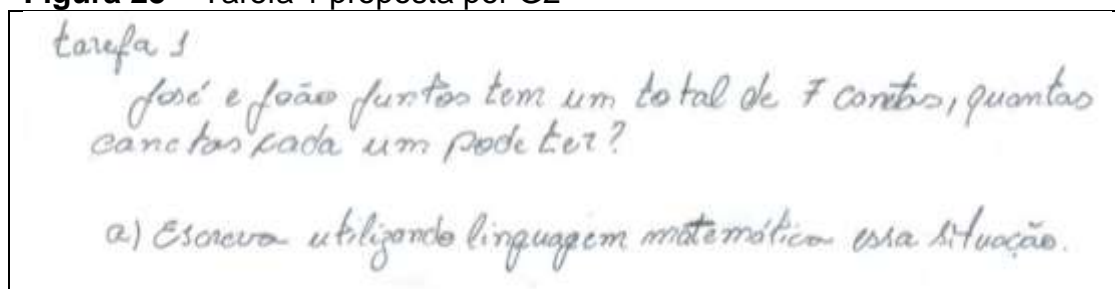 Figura 23 – Tarefa 1 proposta por G2
tarefa 1
José e João juntos tem um total de 7 canetas, quantas
canetas cada um pode ter?
a) Escreva utilizando linguagem matemática essa situação.